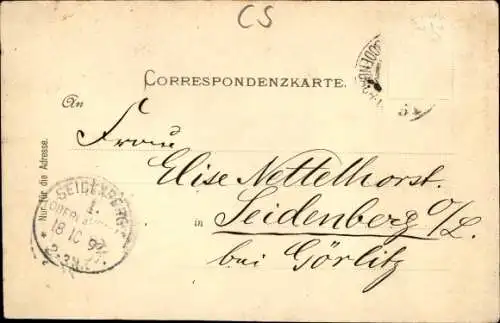 CS
CORRESPONDENZKARTE.
An
Frau
Elise Nettelhorst.
in Seidenberg O/L.
bei Görlitz
Nur für die Adresse.
SEIDENBERG
1.
18 10 97